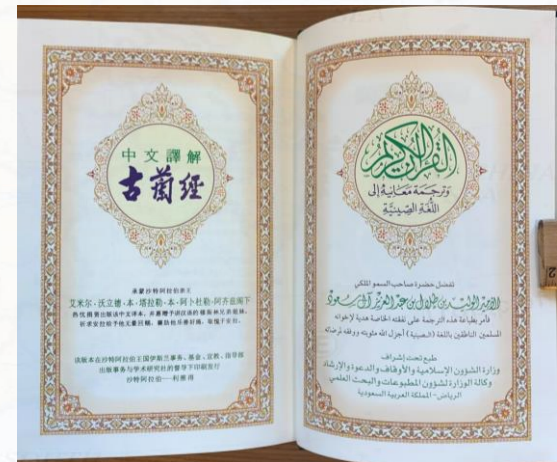 中文譯解
古蘭經
承蒙沙特阿拉伯亲王
艾米尔·沃立德·本·塔拉勒·本·阿卜杜勒·阿齐兹阁下
该版本在沙特阿拉伯王国伊斯兰事务、基金、宣教、指导部
出版事务与学术研究社的督导下印刷发行
沙特阿拉伯——利雅得
القرآن الكريم
وترجمة معانيه إلى
اللغة الصينية
تفضل حضرة صاحب السمو الملكي
الأمير الوليد بن طلال بن عبد العزيز آل سعود
فأمر بطباعة هذه الترجمة على نفقته الخاصة هدية لإخوانه
المسلمين الناطقين باللغة (الصينية) أجزل الله مثوبته ووفقه لمرضاته
طبع تحت إشراف
وزارة الشؤون الإسلامية والأوقاف والدعوة والإرشاد
وكالة الوزارة لشؤون المطبوعات والبحث العلمي
الرياض - المملكة العربية السعودية